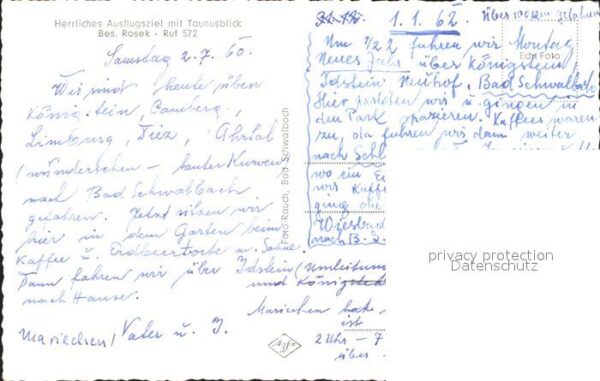 Herrliches Ausflugsziel mit Taunusblick
Bes. Rosek - Ruf 572
Samstag 2.7.60.
Wir sind heute über
König.tein Camberg,
Limburg, Diez, Ahrtal
(wunderschön – lauter Kurven)
nach Bad Schwalbach
gefahren. Jetzt sitzen wir
hier in dem Garten beim
Kaffee u. Erdbeertorte m. Sahne.
Dann fahren wir über Idstein (Umleitung
und König
nach Hause.
Mariechen, Vater u. I.
Foto-Rauch, Bad Schwalbach
Agfa
31.12. 1.1.62. über 100 km gefahren
Um 1/2 2 fuhren wir Montag
Neues Jahr über Königstein,
Echt Foto
Idstein Neuhof, Bad Schwalbach
Hier parkten wir u. gingen in
den Park spazieren. Kaffees waren
zu, da fuhren wir dann weiter
nach Schl
wo ein
wir Kaffe
ging die
Wiesbad
nach B.
Mariechen hatte
ist
2 Uhr – 7
über
privacy protection
Datenschutz